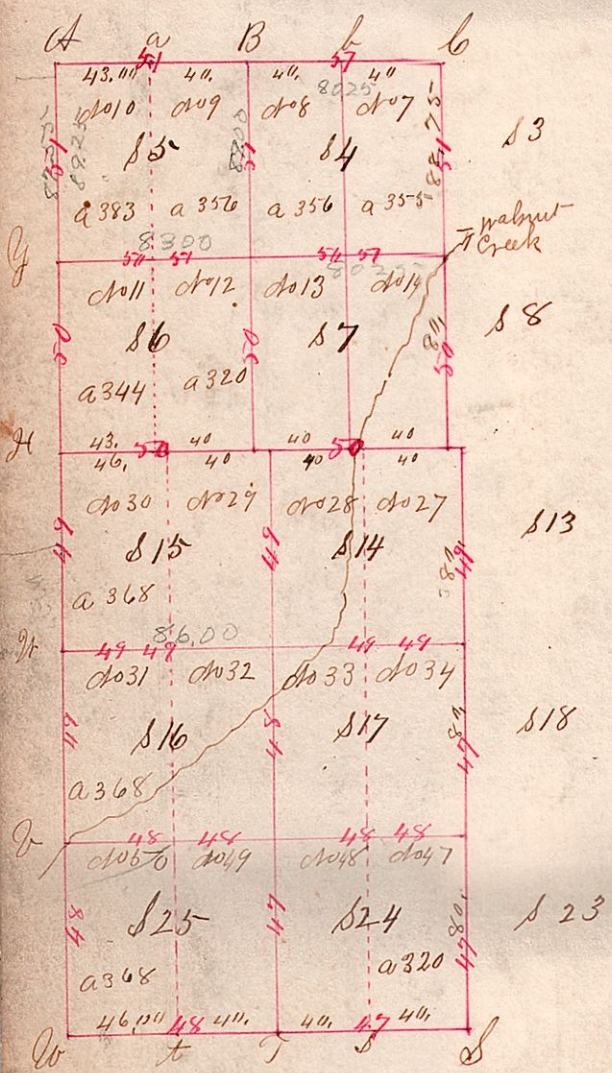 A a B b C
51 57
43.00 40. 40. 40
8025
No10 No9 No8 No7
S5 S4 S3
a 383 a 356 a 356 a 355
Walnut
Creek
Y 8300
51 51 51 57
No11 No12 No13 No14
S6 S7 S8
50 50 50
a 344 a 320
H 43. 50 40 40 50 40
46. 40 40 40
No30 No29 No28 No27
S15 S14 S13
49 49 49
a 368
86.00
49 49 49 49
No31 No32 No33 No34
S16 S17 S18
a 368
48 48 48 48
No50 No49 No48 No47
S25 S24 S23
a 368 a 320
46.00 48 40. 40. 47 40.
W t T s S